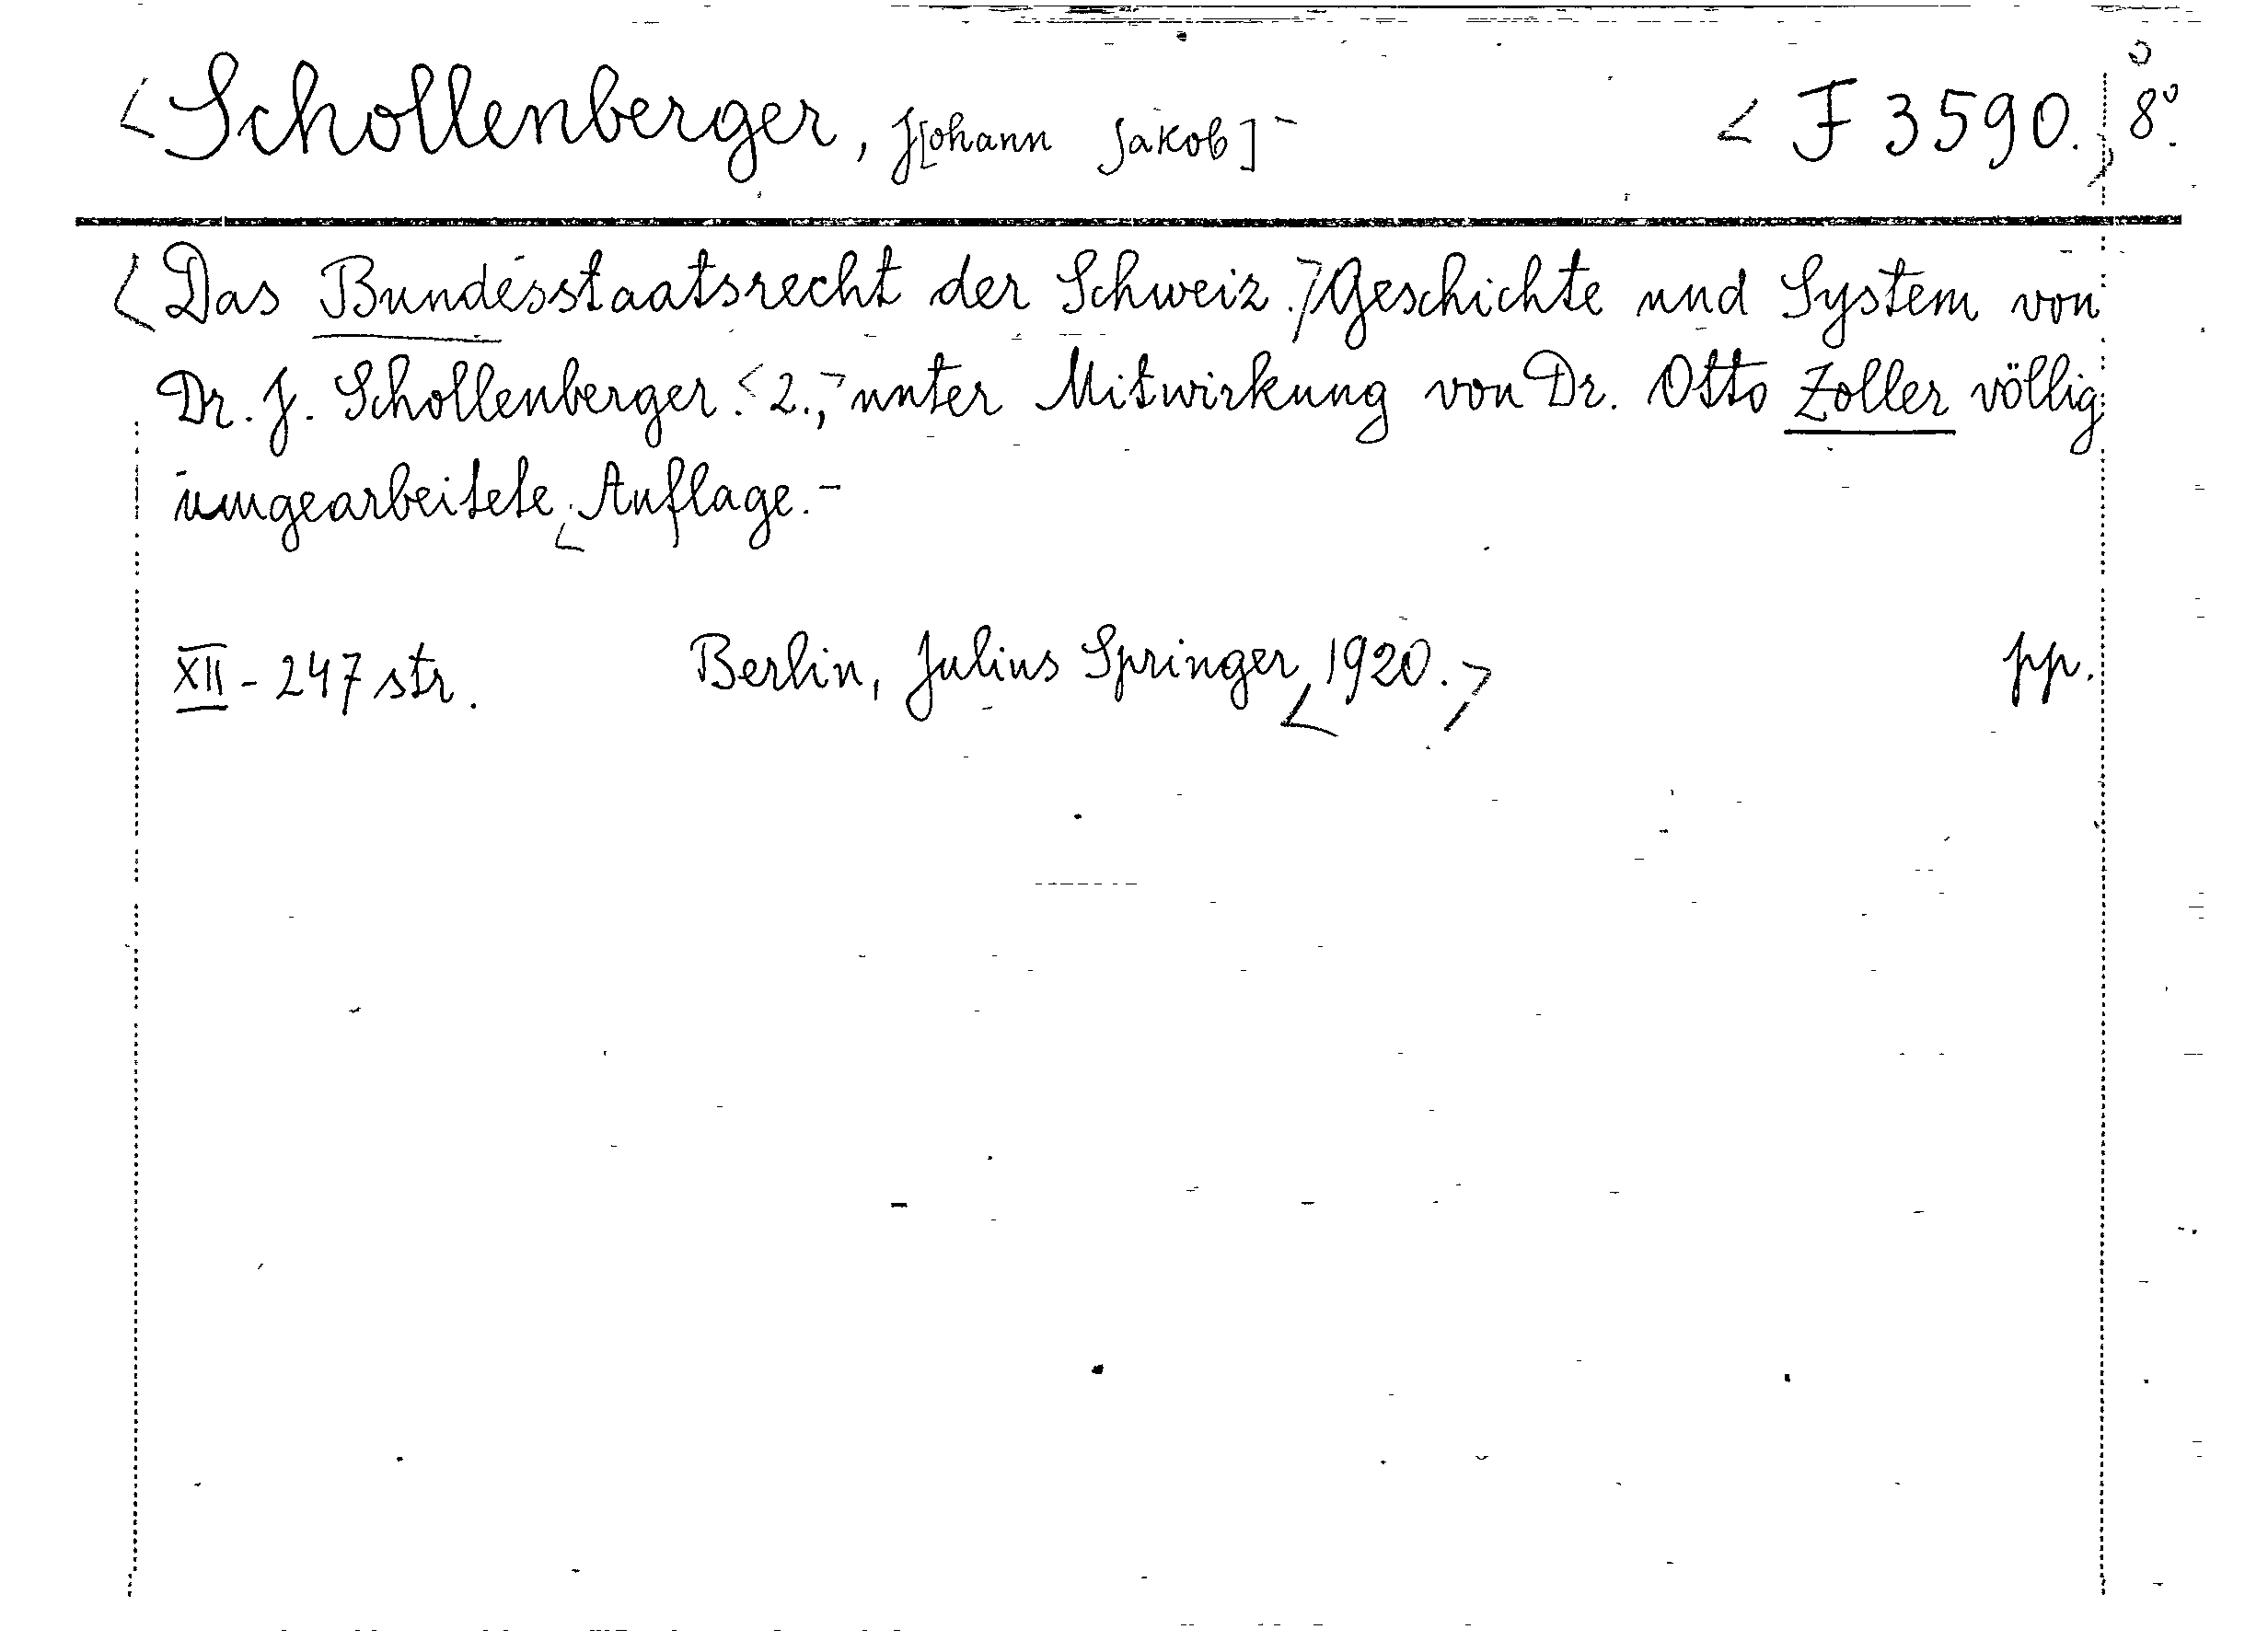 <Schollenberger, J[ohann Jakob]- <F 3590., 8°.
<Das Bundesstaatsrecht der Schweiz.> Geschichte und System von
Dr. J. Schollenberger. <2.,> unter Mitwirkung von Dr. Otto Zoller völlig
umgearbeitete < Auflage.-
XII-247 str. Berlin, Julius Springer < 1920.> pp.